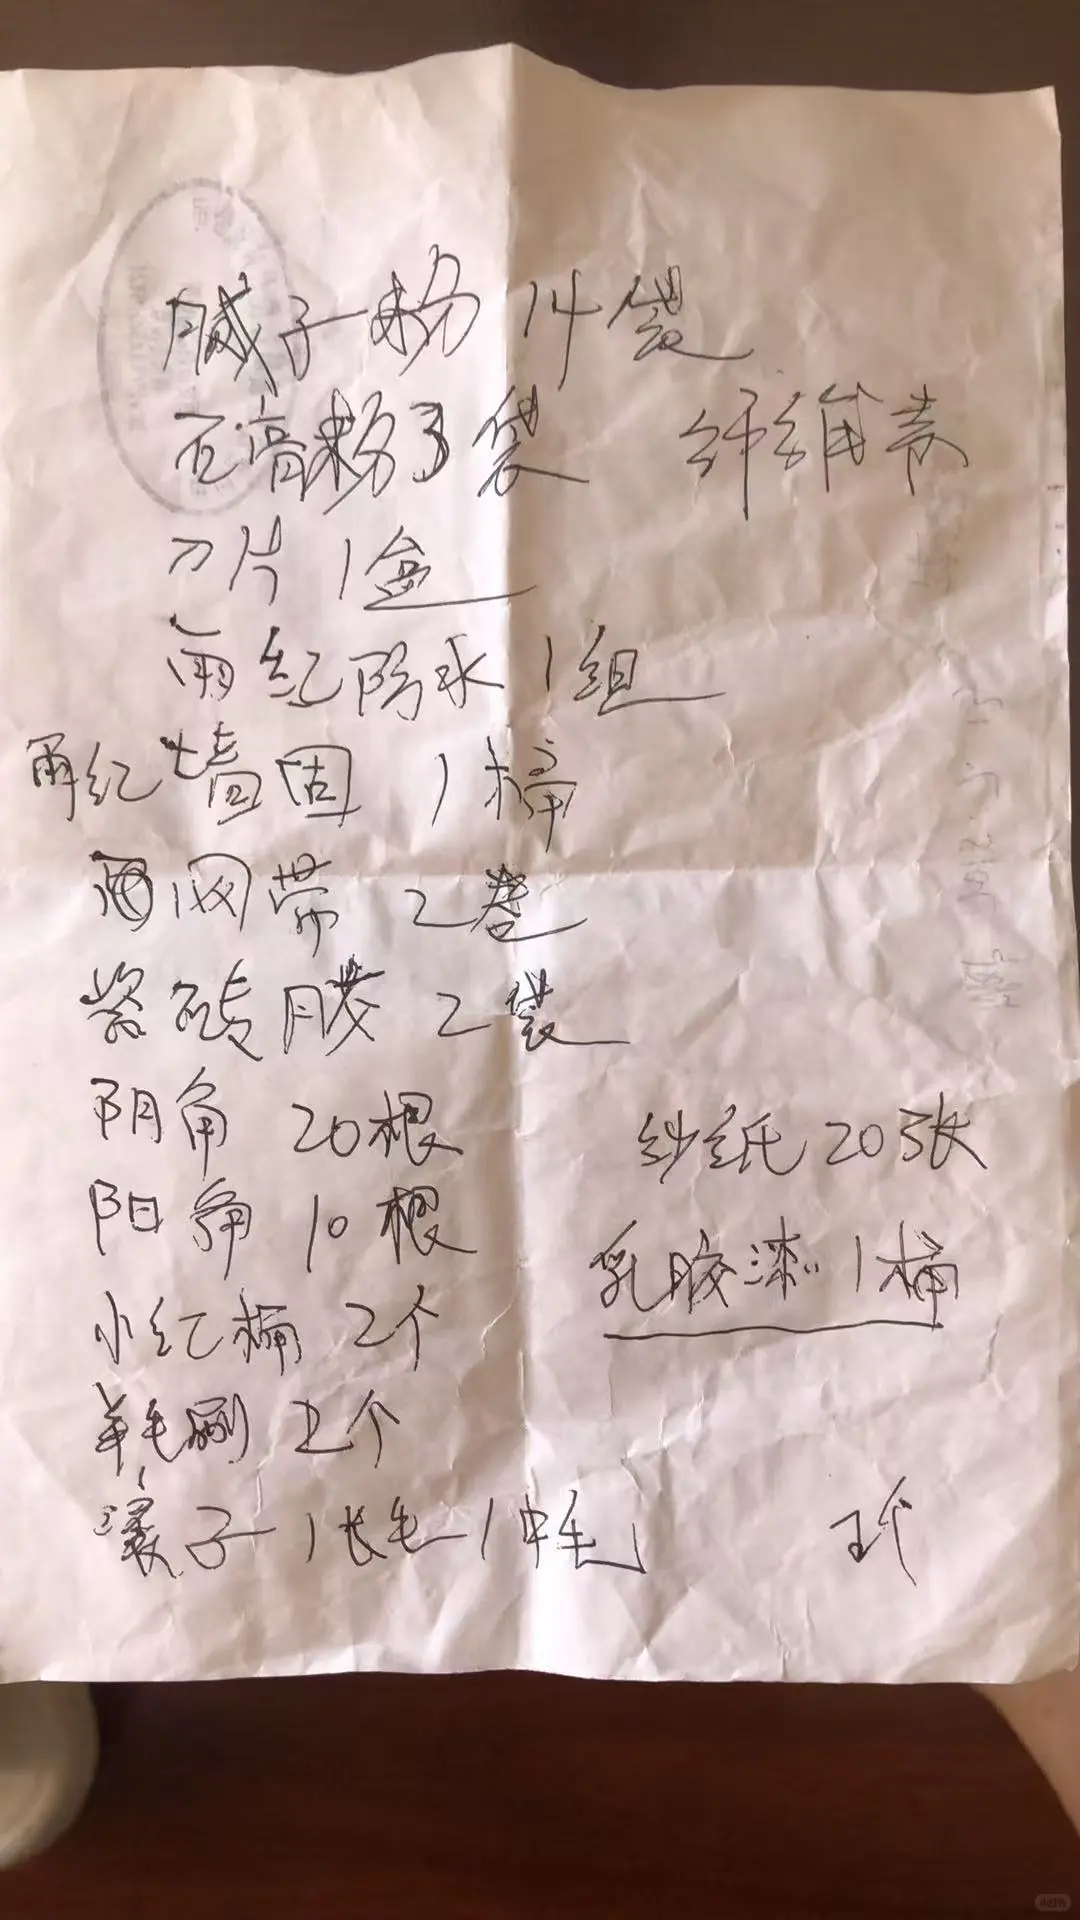 腻子粉 14袋
石膏粉3袋 纤维素
刀片 1盒
雨红防水 1组
雨红墙固 1桶
网带 2卷
瓷砖胶 2袋
阴角 20根
砂纸20张
阳角 10根
乳胶漆 1桶
小红桶 2个
羊毛刷 2个
滚子 1长毛 1中毛